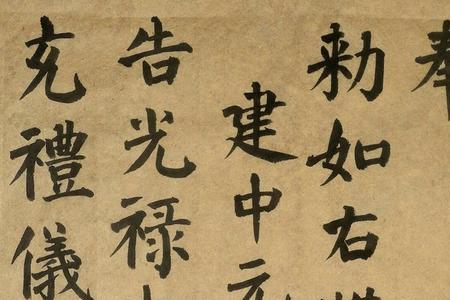 奉
勑如右
建中元
告光禄
充禮儀